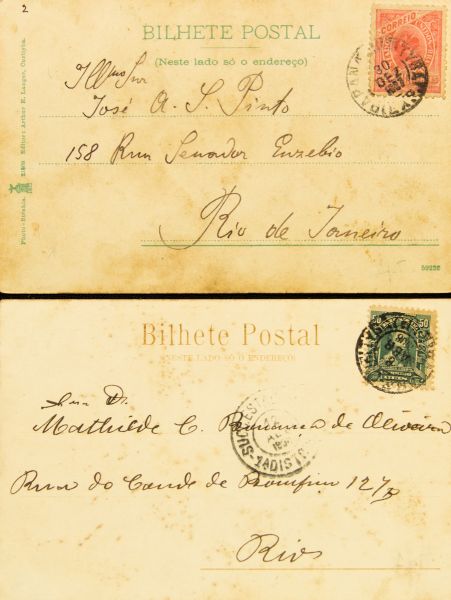 2
BILHETE POSTAL
(Neste lado só o endereço)
CORREIO
Illmo Snr
José A. S. Pinto
158 Rua Senador Euzebio
Rio de Janeiro
Editor: Arthur E. Langer, Curityba.
59236
Bilhete Postal
(NESTE LADO SÓ O ENDEREÇO)
50
Dr.
Mathilde C. de Oliveira
Rua do Conde de Bomfim 127
Rio